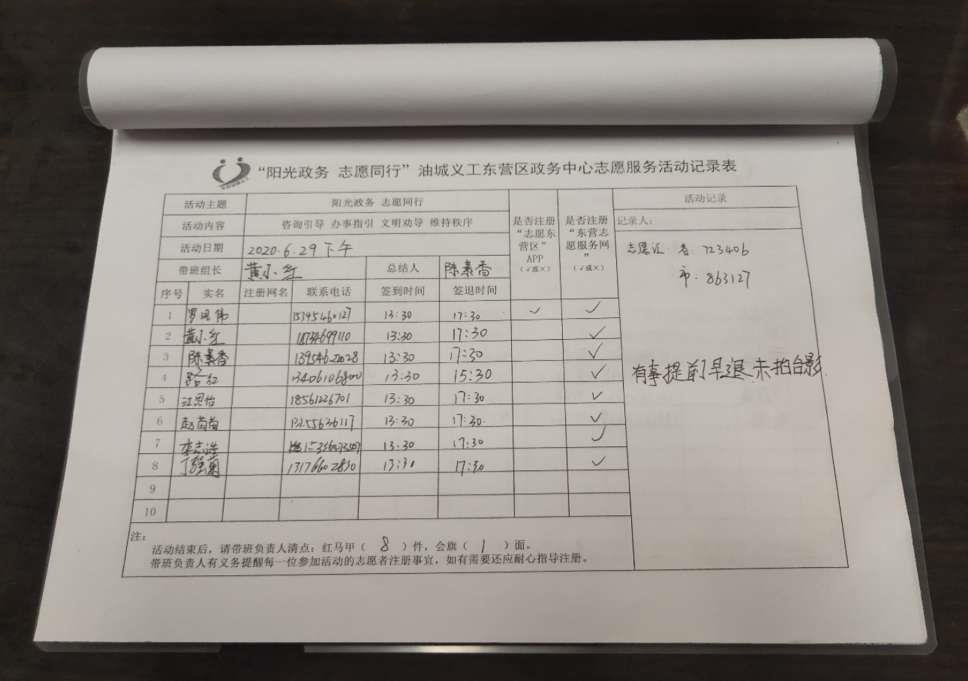 “阳光政务 志愿同行”油城义工东营区政务中心志愿服务活动记录表
活动主题 阳光政务 志愿同行
活动内容 咨询引导 办事指引 文明劝导 维持秩序
活动日期 2020.6.29下午
带班组长 黄小红 总结人 陈素香
是否注册“志愿东营区”APP（√或×）
是否注册“东营志愿服务网”（√或×）
活动记录
记录人：
序号 实名 注册网名 联系电话 签到时间 签退时间
1 13:30 17:30 ✓ ✓
2 黄小红 13:30 17:30 ✓
3 陈素香 13:30 17:30 ✓
4 路红 13406106800 13:30 15:30 ✓
5 江思怡 18561226701 13:30 17:30 ✓
6 13:30 17:30 ✓
7 李志浩 13:30 17:30 ✓
8 13176602830 13:30 17:30 ✓
9
10
志愿汇 区：723406
市：863127
有事提前早退，未拍合影
注：
活动结束后，请带班负责人清点：红马甲（ 8 ）件，会旗（ 1 ）面。
带班负责人有义务提醒每一位参加活动的志愿者注册事宜，如有需要还应耐心指导注册。